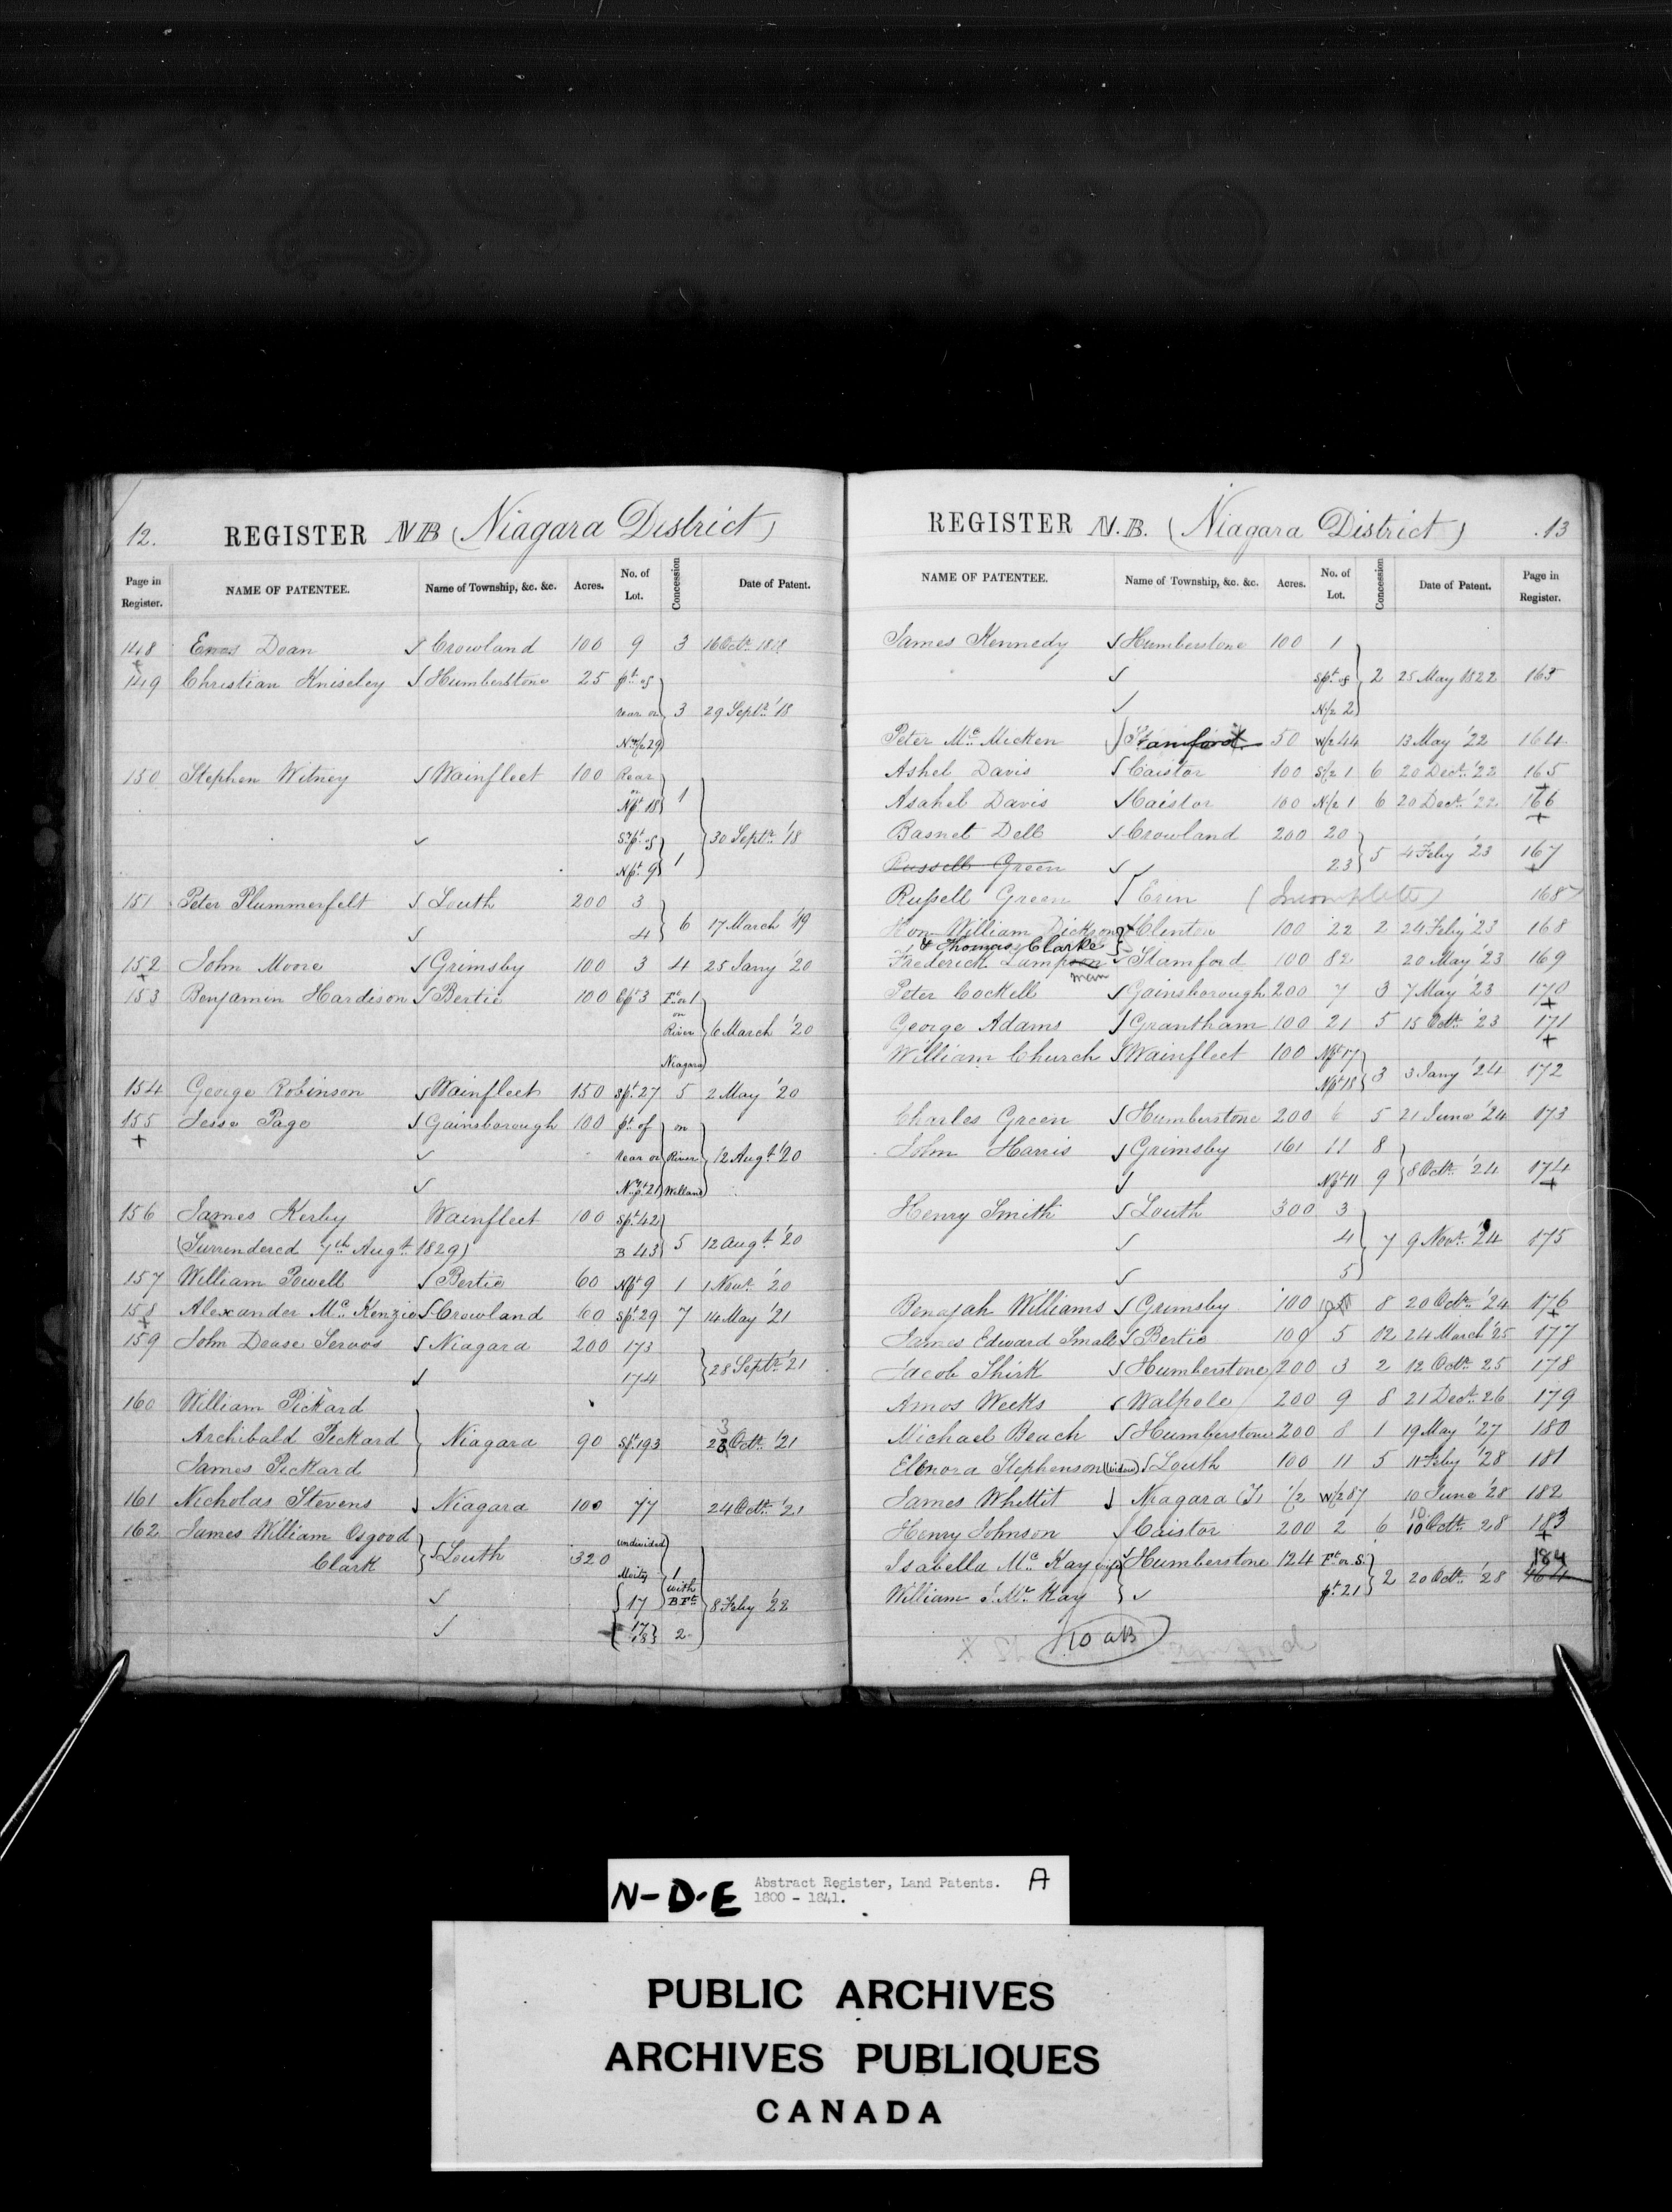 12. REGISTER NB (Niagara District)
Page in Register. NAME OF PATENTEE. Name of Township, &c. &c. Acres. No. of Lot. Concession Date of Patent.
148 Enos Dean Crowland 100 9 3 16 Octr. 1818
149 Christian Kniseley Humberstone 25 pt. of
rear or 3 29 Septr. '18
N 1/2 29
150 Stephen Witney Wainfleet 100 Rear
or
Npt 18 1
✓ Spt. of 30 Septr. '18
Npt. 9 1
151 Peter Plummerfelt Louth 200 3
✓ 4 6 17 March '19
152 John Moore Grimsby 100 3 4 25 Jany '20
153 Benjamin Hardison Bertie 100 3 Ft. or 1
on
River 6 March '20
Niagara
154 George Robinson Wainfleet 150 Spt. 27 5 2 May '20
155 Jesse Page Gainsborough 100 pt. of on
✓ rear or River 12 Augt. '20
✓ Npt. 21 Welland
156 James Kerby Wainfleet 100 Spt. 42
(Surrendered 7th Augt. 1829) B 43 5 12 Augt. '20
157 William Powell Bertie 60 Npt 9 1 1 Novr. '20
158 Alexander Mc. Kenzie Crowland 60 Spt. 29 7 14 May '21
159 John Dease Servos Niagara 200 173
✓ 174 28 Septr. '21
160 William Pickard
Archibald Pickard Niagara 90 Spt. 193 23 Octr. '21
James Pickard
161 Nicholas Stevens Niagara 100 77 24 Octr. '21
162 James William Osgood undivided
Clark Louth 320 Moity 1
✓ 17 with B Ft. 8 Feby '22
✓ 17 18 2
REGISTER N.B. (Niagara District) .13
NAME OF PATENTEE. Name of Township, &c. &c. Acres. No. of Lot. Concession Date of Patent. Page in Register.
James Kennedy Humberstone 100 1
✓ Spt. of 2 25 May 1822 163
✓ N/2 2
Peter Mc. Micken Stamford 50 W/2 44 13 May '22 164
Ashel Davis Caistor 100 S/2 1 6 20 Decr. '22 165
Asahel Davis Caistor 100 N/2 1 6 20 Decr. '22 166
Basnet Dell Crowland 200 20
Russell Green ✓ 23 5 4 Feby '23 167
Russell Green Erin (Incomplete) 168
Hon William Dickson Clinton 100 22 2 24 Feby '23 168
& Thomas Clarke
Frederick Lampson man Stamford 100 82 20 May '23 169
Peter Cockell Gainsborough 200 7 3 7 May '23 170
George Adams Grantham 100 21 5 15 Octr. '23 171
William Church Wainfleet 100 Npt 17
Npt 18 3 3 Jany '24 172
Charles Green Humberstone 200 6 5 21 June '24 173
John Harris Grimsby 161 11 8
✓ Npt 11 9 8 Octr. '24 174
Henry Smith Louth 300 3
✓ 4 7 9 Novr. '24 175
✓ 5
Benajah Williams Grimsby 100 8 20 Octr. '24 176
James Edward Small Bertie 100 5 12 24 March '25 177
Jacob Shirk Humberstone 200 3 2 12 Octr. 25 178
Amos Weeks Walpole 200 9 8 21 Decr. 26 179
Michael Beach Humberstone 200 8 1 19 May '27 180
Elenora Stephenson (widow) Louth 100 11 5 11 Feby '28 181
James Whittit Niagara (T) 1/2 W/2 87 10 June '28 182
Henry Johnson Caistor 200 2 6 10 10 Octr. 28 183
Isabella Mc. Kay Humberstone 124 Ft. or S. 184
William J. Mc. Kay ✓ pt. 21 2 20 Octr. '28 164
10 aB
N-D-E Abstract Register, Land Patents. A
1800 - 1841.
PUBLIC ARCHIVES
ARCHIVES PUBLIQUES
CANADA